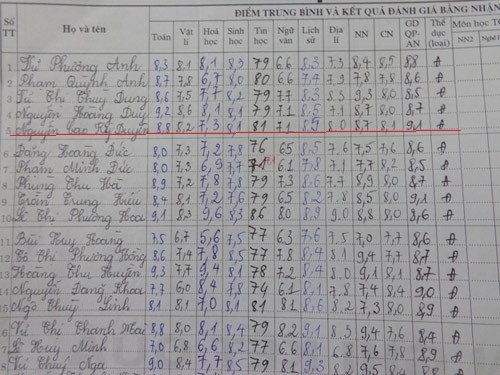 ĐIỂM TRUNG BÌNH VÀ KẾT QUẢ ĐÁNH GIÁ BẰNG NHẬN
Số TT Họ và tên Toán Vật lí Hoá học Sinh học Tin học Ngữ văn Lịch sử Địa lí NN CN GD QP-AN Thể dục (loại) Môn học NN2
1 Phương Anh 8,3 8,1 6,1 8,3 79 6,6 8,3 7,3 8,4 8,5 8,8 Đ
2 Phạm Quỳnh Anh 8,7 7,8 6,7 8,0 80 6,6 7,4 7,9 7,8 7,8 8,6 Đ
3 Thị Thuỳ Dung 8,6 7,5 7,7 8,2 79 7,7 8,3 8,5 9,3 8,0 8,5 Đ
4 Nguyễn Hoàng Duy 9,2 8,6 8,1 8,1 79 7,1 8,5 7,1 8,7 8,0 8,7 Đ
5 Nguyễn Cao Kỳ Duyên 8,8 8,2 7,3 8,1 81 7,1 8,9 8,0 8,7 8,1 9,1 Đ
6 Đặng Hoàng Đức 8,0 7,3 7,2 7,8 76 6,5 8,5 7,6 7,5 7,6 8,6 Đ
7 Phạm Minh Đức 8,0 7,3 6,9 7,7 6,1 7,8 7,1 7,7 8,2 8,5 Đ
8 Phùng Thu Hà 8,9 7,2 7,8 7,8 79 7,3 8,6 7,7 8,9 8,0 8,7 Đ
9 Trần Trung Hiếu 8,4 8,1 7,2 7,6 79 6,5 8,2 7,8 8,5 8,0 9,1 Đ
10 Lê Thị Phương Hoa 9,1 8,3 9,6 8,3 86 8,0 8,9 9,0 8,8 8,0 8,6 Đ
11 Bùi Huy Hoàng 7,5 6,7 5,6 7,5 77 6,3 7,6 7,5 7,0 7,7 8,6 Đ
12 Thị Phương Hồng 8,6 7,4 7,8 8,5 77 7,8 8,4 8,1 9,4 7,7 8,7 Đ
13 Hoàng Thu Huyền 9,3 7,7 9,4 8,1 78 7,2 8,4 8,0 9,1 8,1 8,7 Đ
14 Nguyễn Đăng Khoa 7,7 6,0 8,4 7,8 74 6,1 8,1 7,8 7,4 8,4 9,0 Đ
15 Ngô Thuỳ Linh 8,1 8,1 7,0 8,1 81 8,1 8,6 8,2 7,3 8,0 8,9 Đ
Thị Thanh Mai 8,8 8,0 8,1 8,4 79 8,2 9,1 8,3 9,4 7,6 8,4 Đ
Lê Huy Minh 7,0 6,8 6,6 8,2 77 6,6 8,1 6,8 7,6 7,8 8,9 Đ
Thị Thuý Nga 9,0 8,4 7,7 8,5 79 8,1 9,3 8,2 9,5 8,4